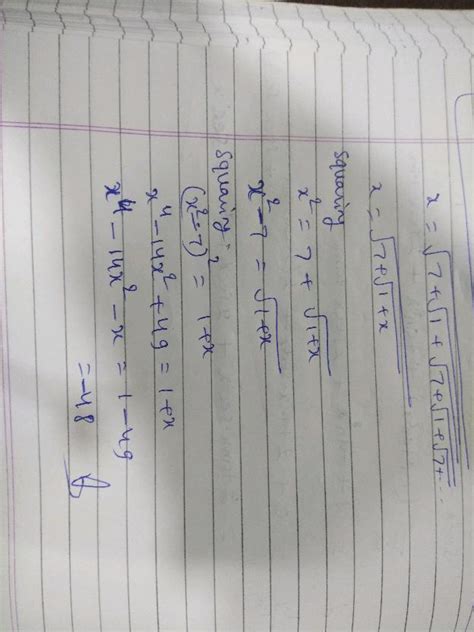 x = √7 + √1 + √7 + √1 + √7 + ...
x = √7 + √1 + x
squaring
x² = 7 + √1 + x
x² - 7 = √1 + x
squaring
(x² - 7)² = 1 + x
x⁴ - 14x² + 49 = 1 + x
x⁴ - 14x² - x = 1 - 49
= -48